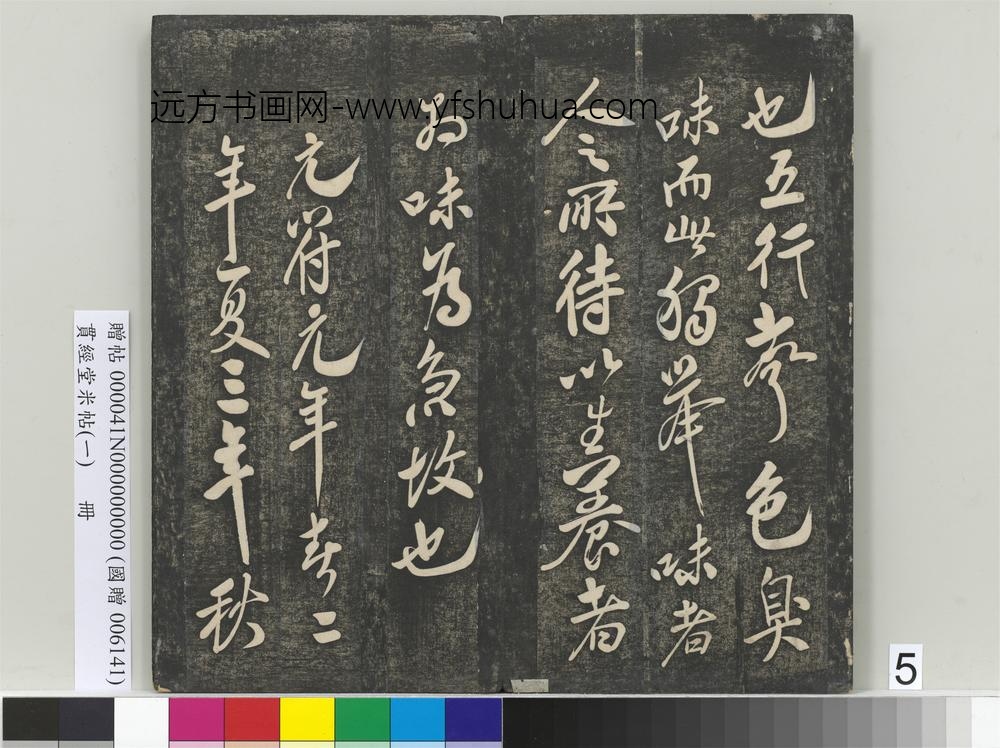 远方书画网-www.yfshuhua.com
也五行声色臭
味而此獨舉味者
人之所待以生養者
為味為急故也
元符元年春二
年夏三年秋
贈帖 000041N000000000 (國贈 006141)
貫經堂米帖(一) 冊
5